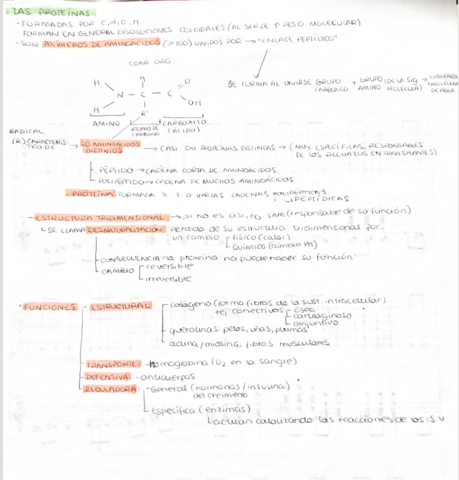 · LAS PROTEÍNAS
- FORMADAS POR C, H, O, N
FORMAN EN GENERAL DISOLUCIONES COLOIDALES (AL SER DE ↑ PESO MOLECULAR)
- SON POLÍMEROS DE AMINOÁCIDOS (>100) UNIDOS POR → "ENLACE PEPTÍDICO"
SE FORMA AL UNIRSE GRUPO CARBOXILO + GRUPO AMINO (DE LA SIG MOLÉCULA)
COMP ORG
H H O
N - C - C
H R OH
AMINO ÁTOMO DE CARBONO CARBOXILO (ÁCIDO)
RADICAL (R) CARACTERÍSTICO DE → 20 AMINOÁCIDOS DISTINTOS → CASI 000 PROTEÍNAS DISTINTAS → (MUY ESPECÍFICAS, RESPONSABLES DE LOS RECHAZOS EN TRANSPLANTES)
PÉPTIDO → CADENA CORTA DE AMINOÁCIDOS
POLIPÉTIDO → CADENA DE MUCHOS AMINOÁCIDOS
PROTEÍNA FORMADA X 1 O VARIAS CADENAS POLIPEPTÍDICAS
- ESTRUCTURA TRIDIMENSIONAL → si no es así, no sare (responsable de su función)
↳ SE LLAMA DESNATURALIZACIÓN: Perdida de su estructura tridimensional por
un cambio físico (calor)
químico (cambio PH)
- CONSECUENCIA → la proteína no puede hacer su función
- CAMBIO reversible
irreversible
· FUNCIONES - ESTRUCTURAL colágeno (forma fibras de la sust intracelular)
tej conectivos óseo
cartilaginoso
conjuntivo
queratina: pelos, uñas, plumas
actina/miosina: fibras musculares
TRANSPORTE - hemoglobina (O2 en la sangre)
DEFENSIVA - anticuerpos
REGULADORA - General (hormonas / insulina)
del crecimiento
Específica (enzimas)
↳ actúan catalizando las reacciones de los S.V.